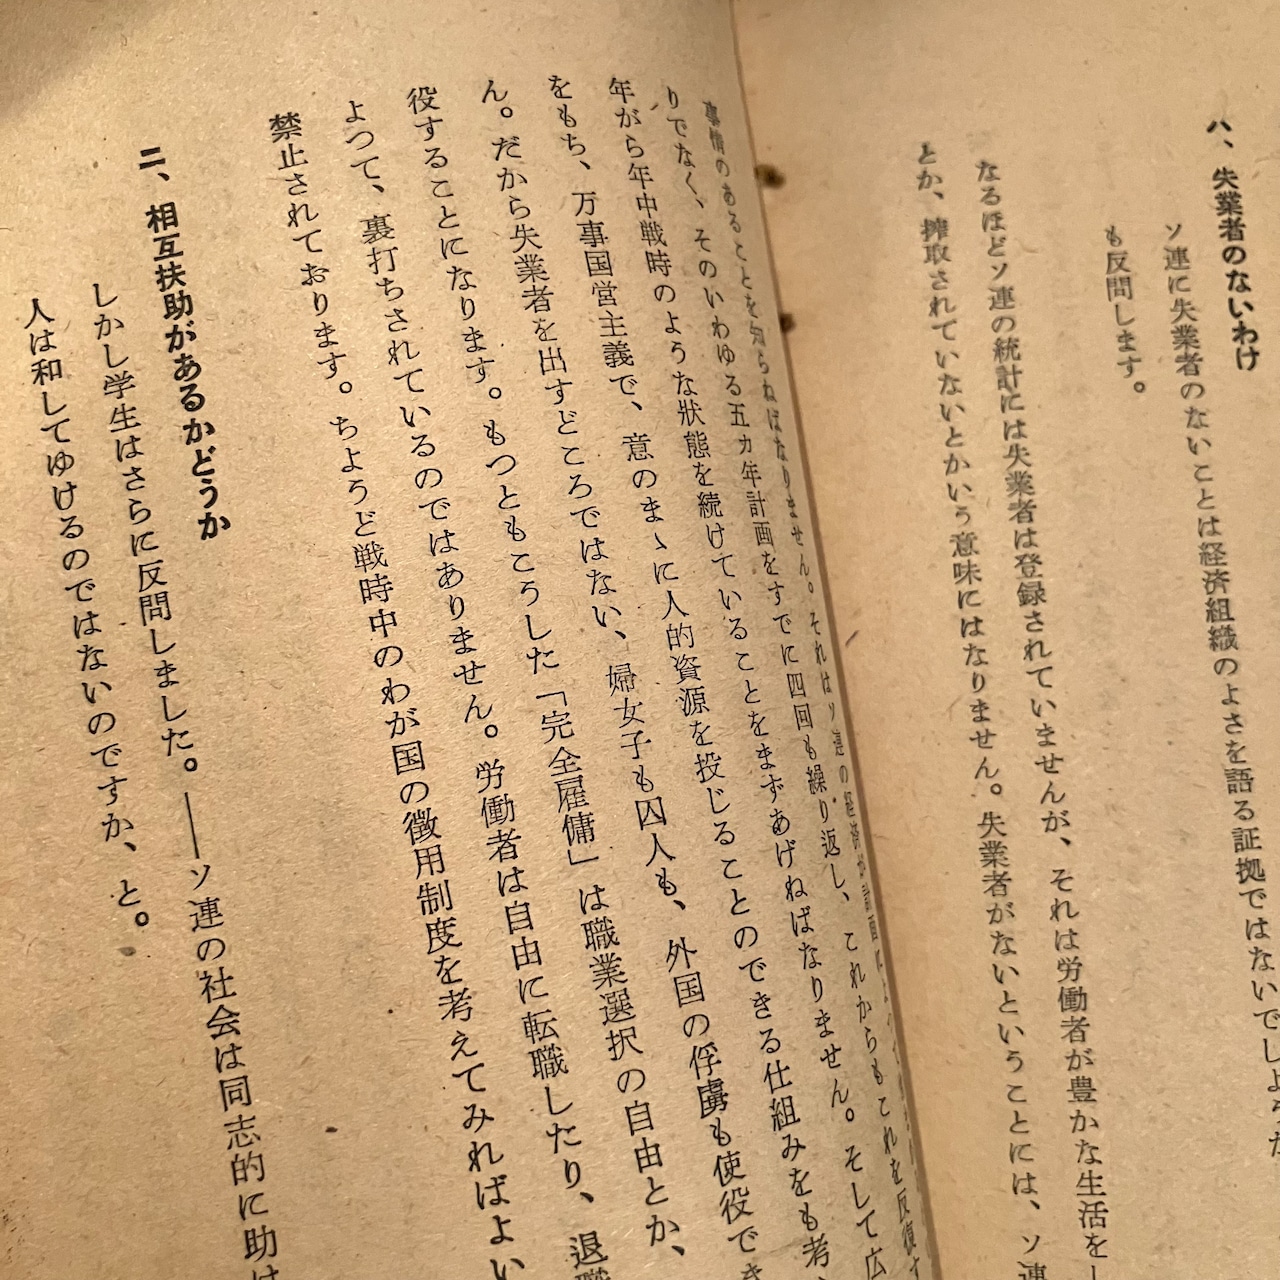 ハ、失業者のないわけ
ソ連に失業者のないことは経済組織のよさを語る証拠ではないでしようか
も反問します。
なるほどソ連の統計には失業者は登録されていませんが、それは労働者が豊かな生活をし
とか、搾取されていないとかいう意味にはなりません。失業者がないということには、ソ連
事情のあることを知らねばなりません。それはソ連の経済が計画によつて
りでなく、そのいわゆる五カ年計画をすでに四回も繰り返し、これからもこれを反復す
年がら年中戦時のような狀態を続けていることをまずあげねばなりません。そして広
をもち、万事国営主義で、意のまゝに人的資源を投じることのできる仕組みをも考
ん。だから失業者を出すどころではない、婦女子も囚人も、外国の俘虜も使役でき
役することになります。もつともこうした「完全雇傭」は職業選択の自由とか、
よつて、裏打ちされているのではありません。労働者は自由に転職したり、退職
禁止されております。ちようど戦時中のわが国の徴用制度を考えてみればよい
二、相互扶助があるかどうか
しかし学生はさらに反問しました。――ソ連の社会は同志的に助け
人は和してゆけるのではないのですか、と。